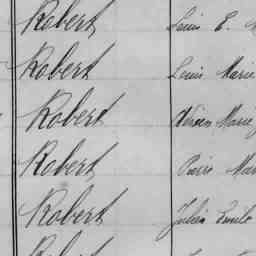 Robert Louis E.
Robert Louis Marie
Robert Marie
Robert Pierre Mar
Robert Julien Emile
Robert